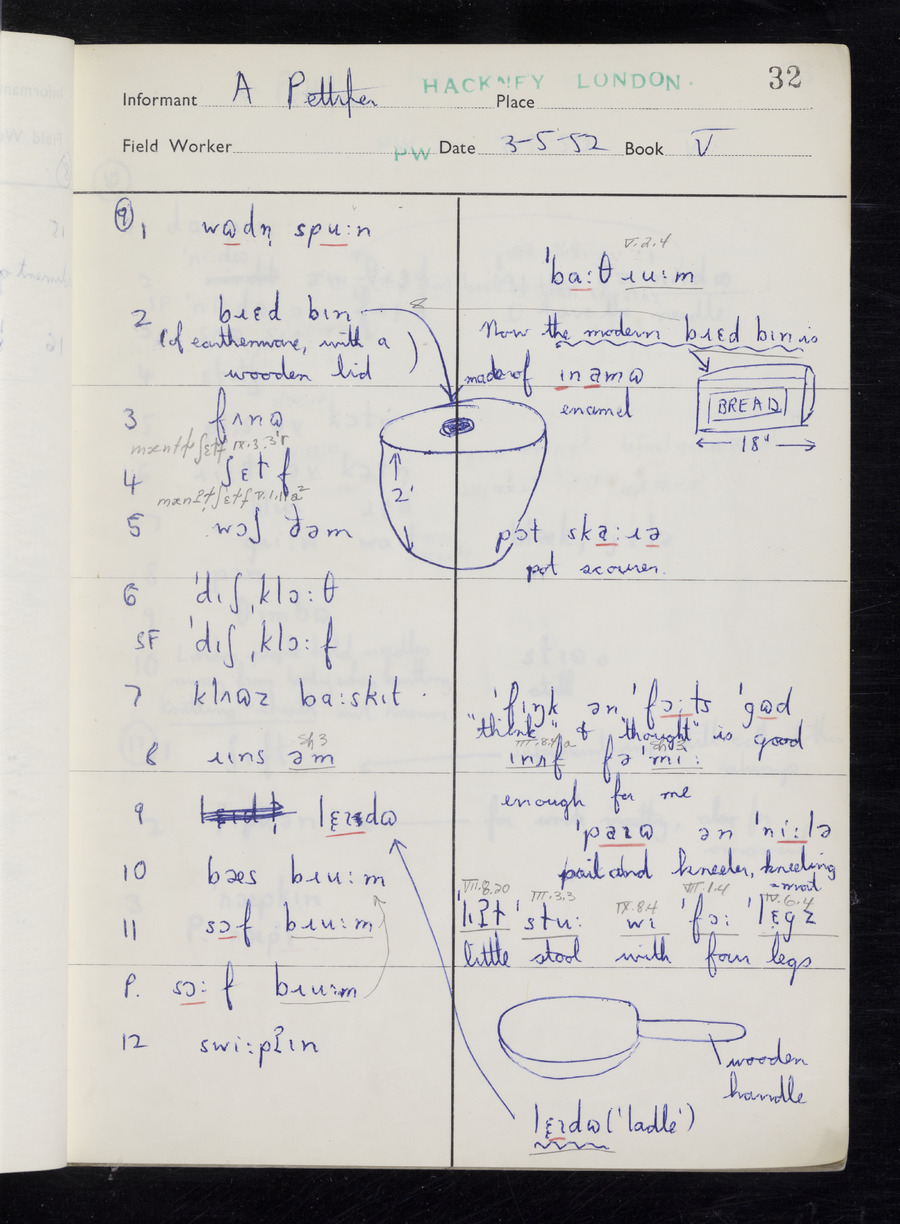 32
HACKNEY LONDON.
Informant A Pettifer Place
Field Worker PW Date 3-5-52 Book V
⑨ 1 wɷdn̩ spu:n
2 bɹɛd bin 8
(of earthenware, with a
wooden lid)
3 fʌnɷ
IX.3.3
4 ʃɛɫf
V.1.11a²
5 wɔʃ ðəm
6 ˈdɪʃˌklɔ:θ
SF ˈdɪʃˌklɔ:f
7 klʌɷz ba:skɪt.
sh 3
8 ɹɪns əm
9 lɛɪdɷ
10 bæs bɹu:m
11 sɔf bɹu:m
P. sɔ:f bɹu:m
12 swi:pʔɪn
V.2.4
ˈba:θɹu:m
Now the modern bɹɛd bɪn is
made of ɪnamɷ
enamel
BREAD
18"
2'
pɔt ska:ɹə
pot scourer.
ˈfɪŋk ən ˈfɔ:ts ˈgɷd
"think" & "thought" is good
sh 3
ɪnʌf fəˈmi:
enough for me
ˈpaɪɷ ən ˈni:lə
pail and kneeler, kneeling
-mat
VII.8.20 III.3.3 IX.8.4 VII.1.4 IV.6.4
ˈlɪʔɫ ˈstu: wɪ ˈfɔ: ˈlɛgz
little stool with four legs
wooden
handle
lɛɪdɷ ('ladle')